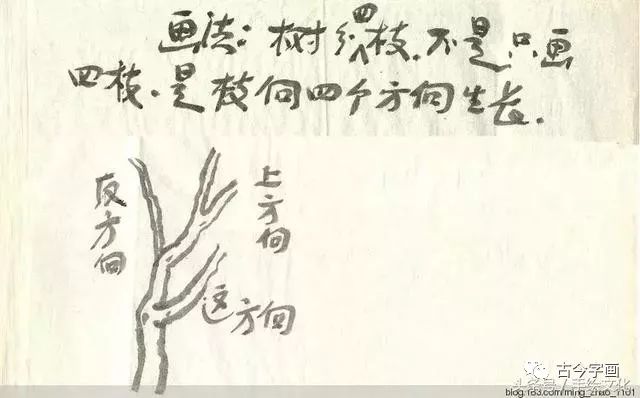 画法：树四枝.不是只画
四枝.是枝向四个方向生长.
反方向
上方向
这方向
古今字画
头条号 / 手绘文化
blog.163.com/ming_zhao_1101